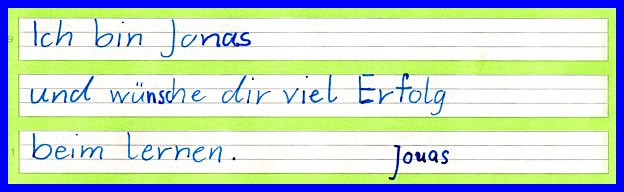 Ich bin Jonas
und wünsche dir viel Erfolg
beim lernen. Jonas